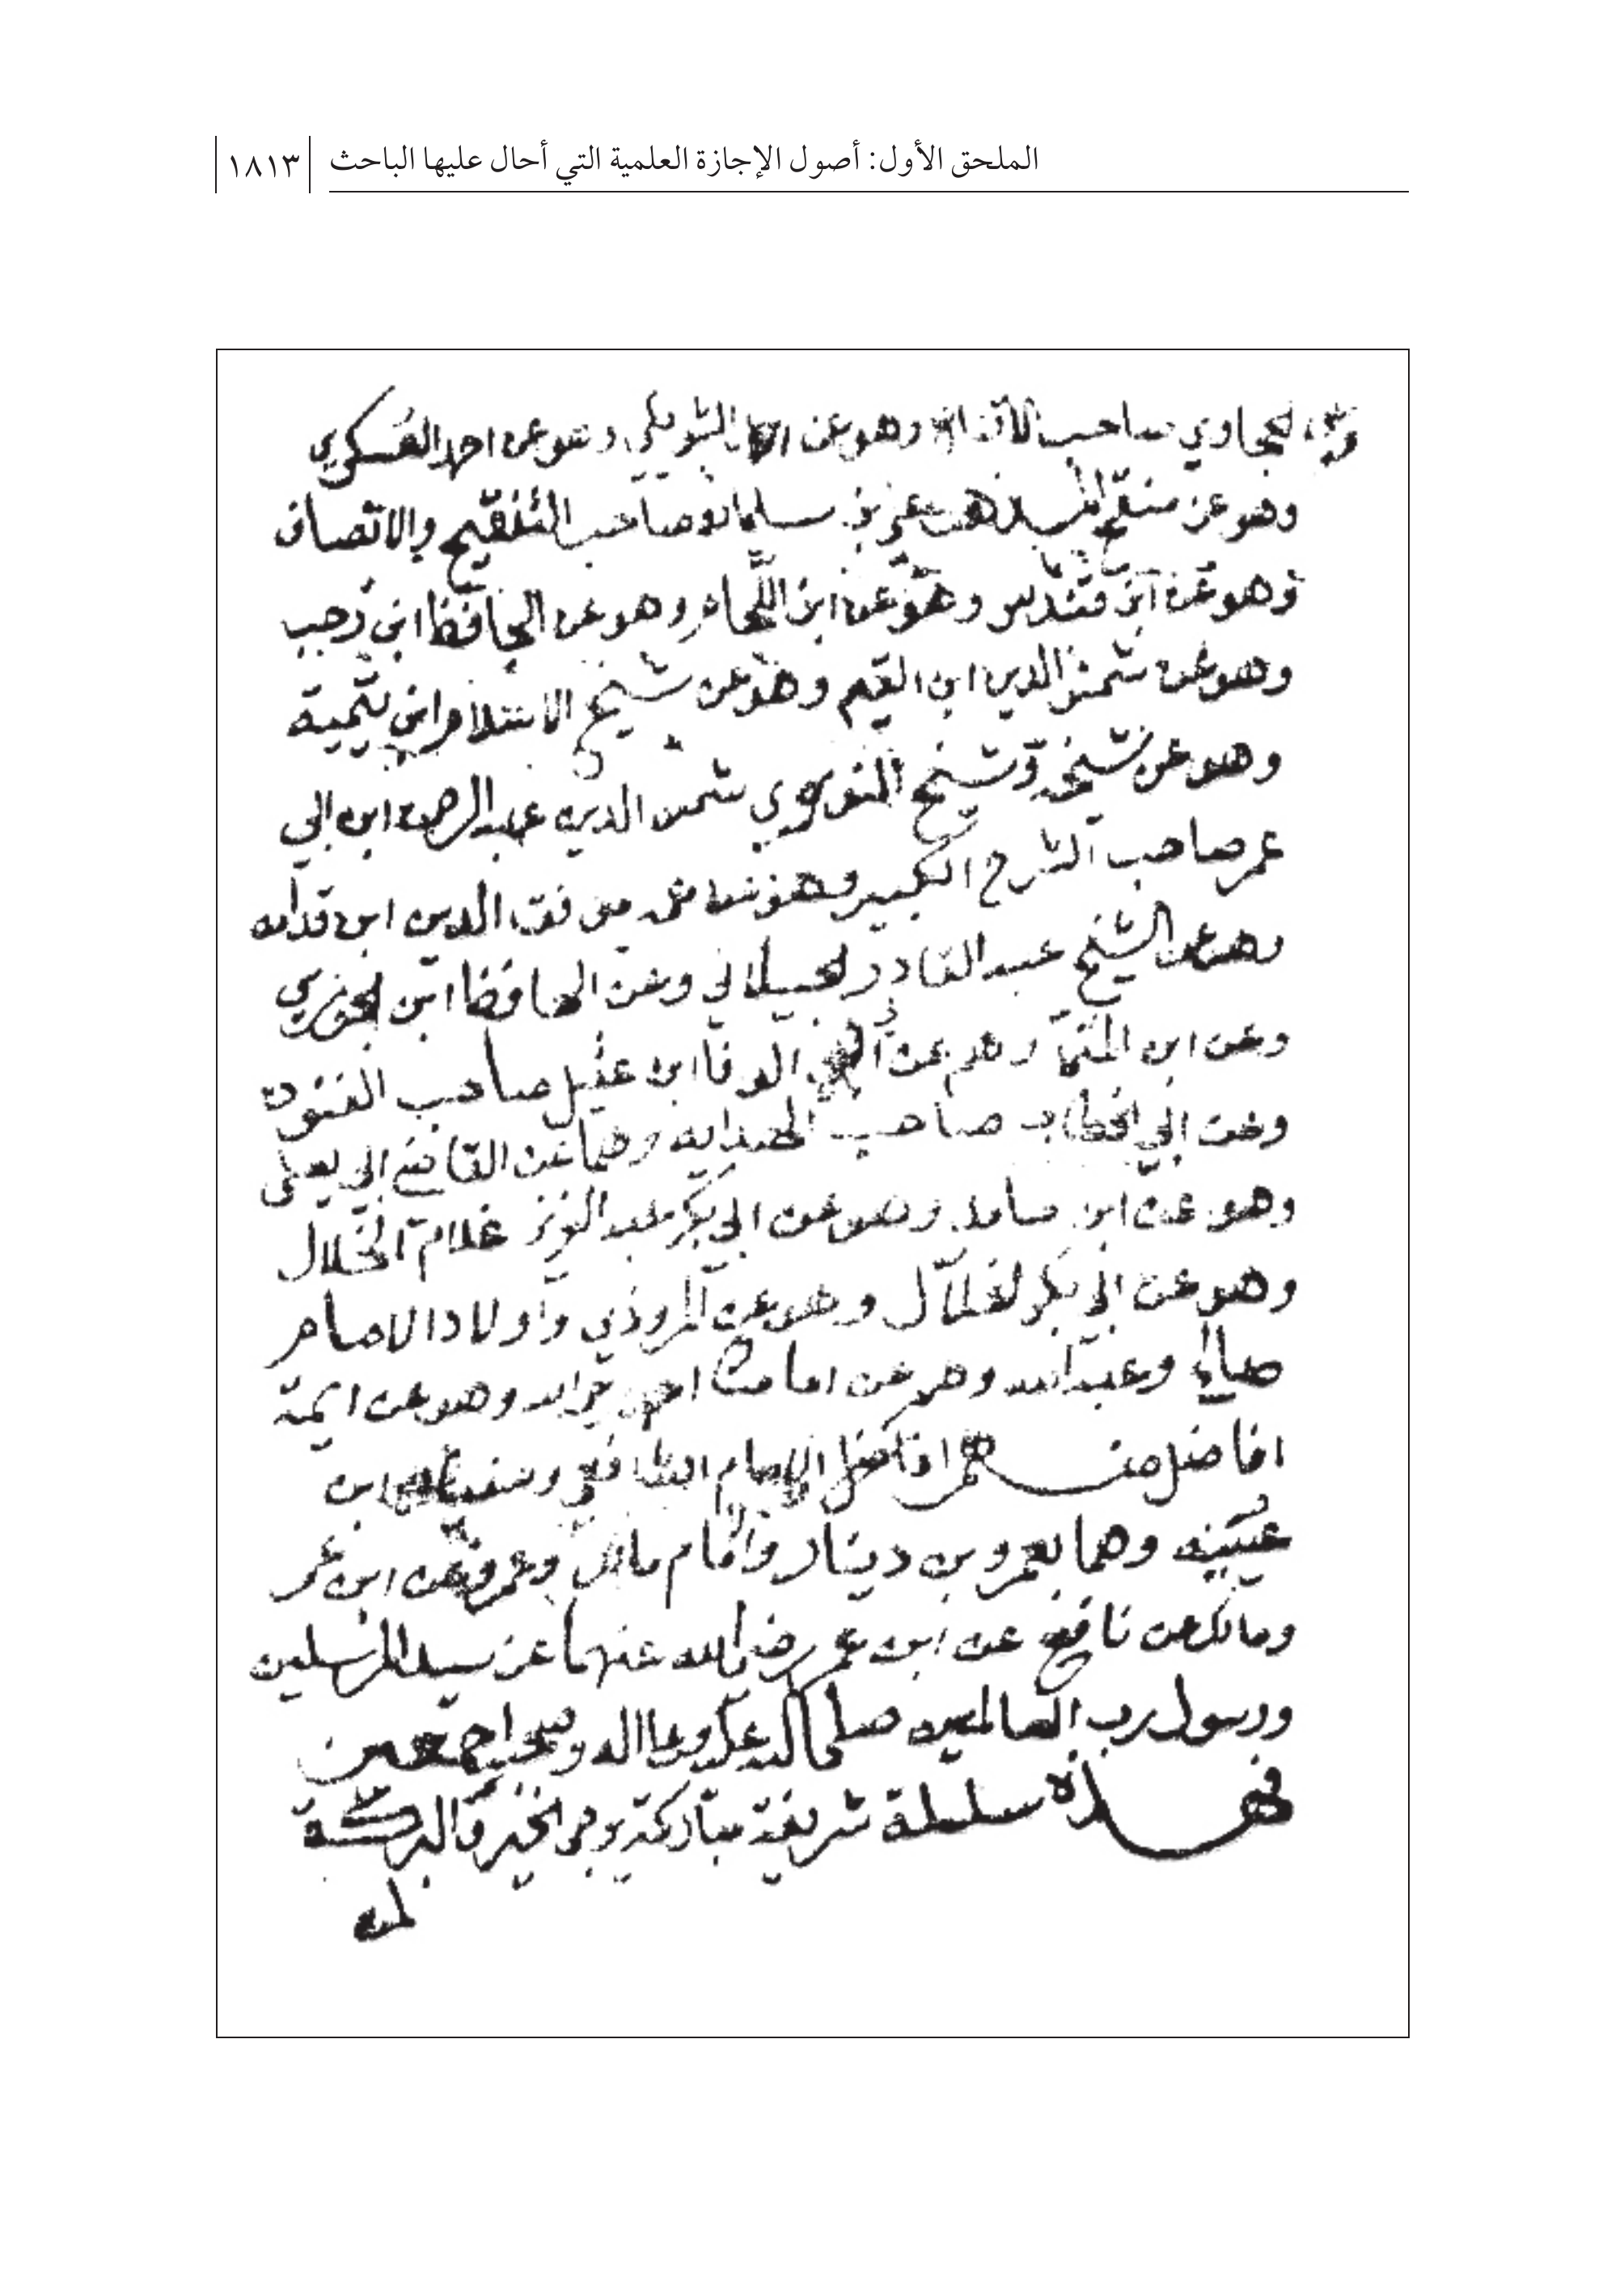 الملحق الأول: أصول الإجازة العلمية التي أحال عليها الباحث ١٨١٣
الحجاوي صاحب الاقناع وهو عن الشويكي وهو عن احمد العسكري
وهو عن منقح المذهب علي بن سليمان صاحب التنقيح والانصاف
وهو عن ابن قندس وهو عن ابن اللحام وهو عن الحافظ ابن رجب
وهو عن شمس الدين ابن القيم وهو عن شيخ الاسلام ابن تيمية
وهو عن شيخه وشيخ النووي شمس الدين عبد الرحمن ابن ابي
عمر صاحب الشرح الكبير وهو عن عمه موفق الدين ابن قدامه
وهو عن الشيخ عبد القادر الجيلاني وعن الحافظ ابن الجوزي
وعن ابن المنى وهم عن ابي الوفا ابن عقيل صاحب الفنون
وعن ابي الخطاب صاحب الهدايه وهما عن القاضي ابي يعلى
وهو عن ابن حامد وهو عن ابي بكر عبد العزيز غلام الخلال
وهو عن ابي بكر الخلال وهو عن المروذي واولاد الامام
صالح وعبد الله وهم عن امامنا احمد وهو عن ايمة
افاضل منهم افاضل الامام الشافعي وسفيان ابن
عيينه وهما بعمرو بن دينار وامام مالك وعمرو عن ابن عمر
ومالك عن نافع عن ابن عمر رضي الله عنهما عن سيد المرسلين
ورسول رب العالمين صلى الله عليه وعلى اله وصحبه اجمعين
فهذه سلسلة شريفة مباركة يرجى الخير والبركة
لمن